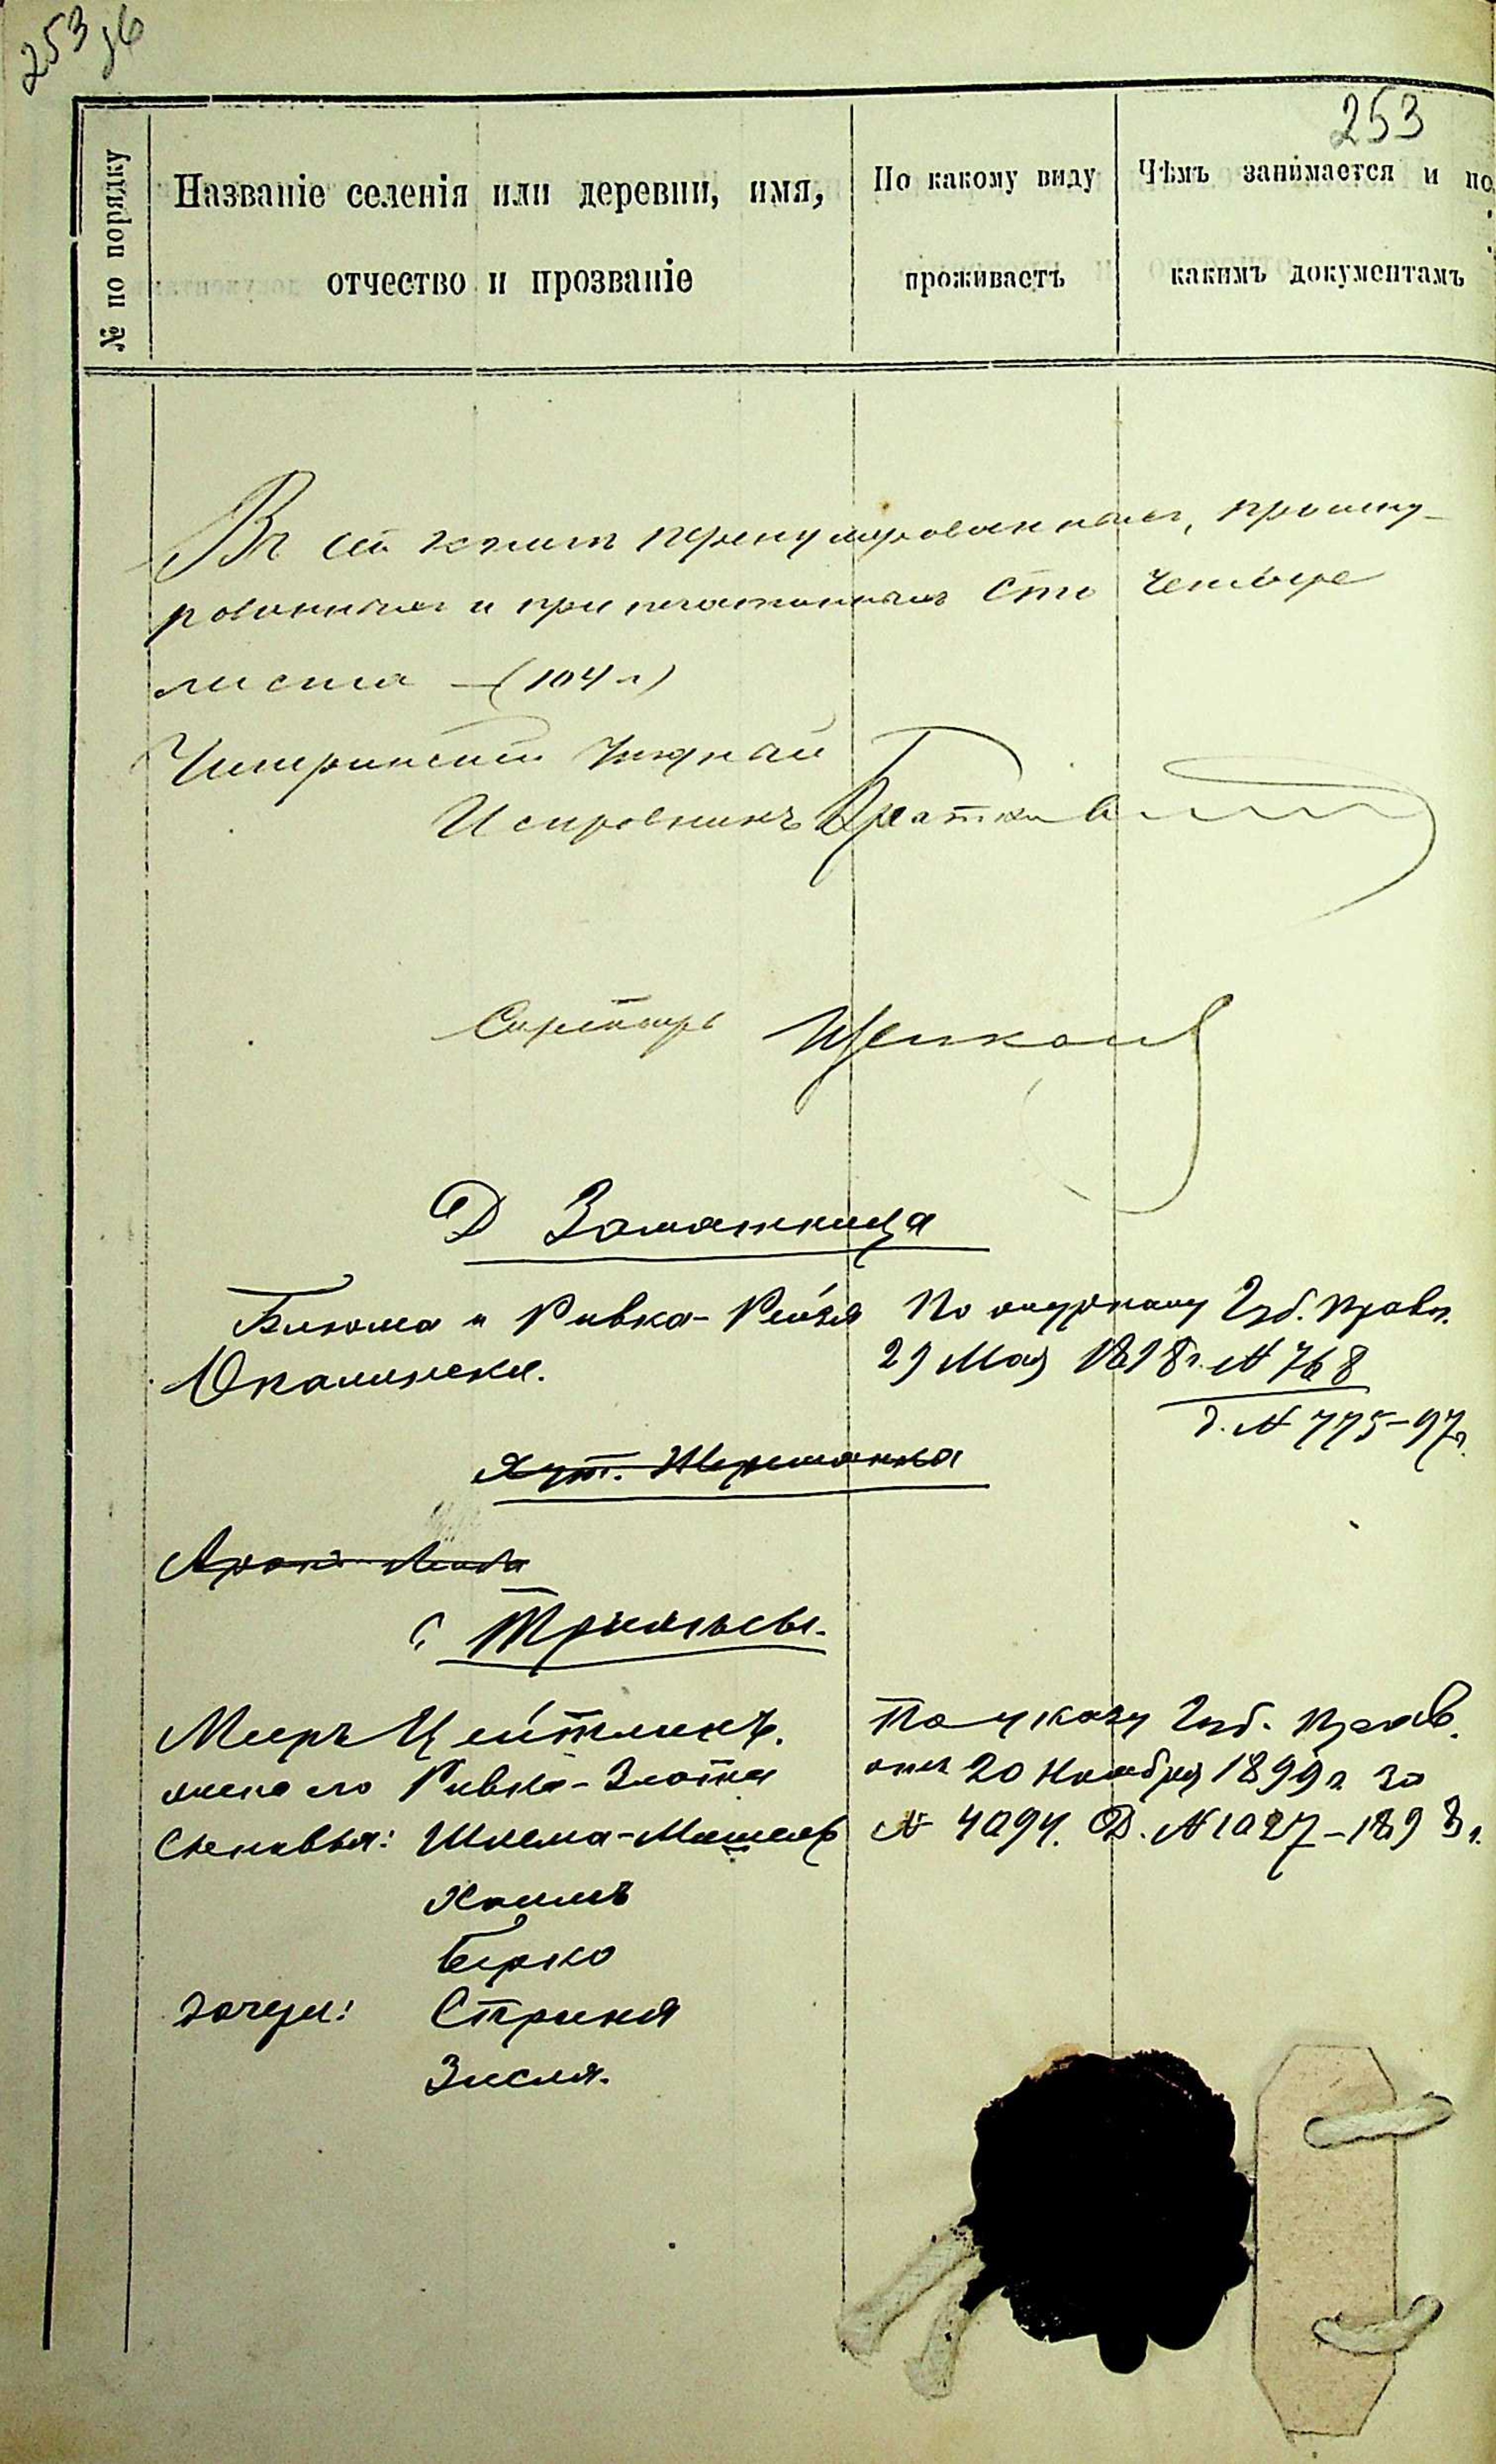 253 г6
253
№ по порядку
Названіе селенія или деревни, имя,
отчество и прозваніе
По какому виду
проживаетъ
Чѣмъ занимается и по
какимъ документамъ
Въ сей книгѣ перенумерованныхъ, прошну-
рованныхъ и припечатанныхъ сто четыре
листа — (104 л)
Чигиринскій Уѣздный
Исправникъ
Секретарь
Д
Блюма и Ривка-Рейзя
По
Губ. Правл.
29 Мая 1898 г. № 768
д. № 775-97 г.
с.
Мееръ Цейтлинъ.
жена его Ривка-Злота
Сыновья: Шлема-
Хаимъ
Берко
дочери: Стрыня
Зисля.
По указу Губ. Прав.
отъ 20 Ноября 1899 г за
№ 4094. Д. № 1027-1893 г.